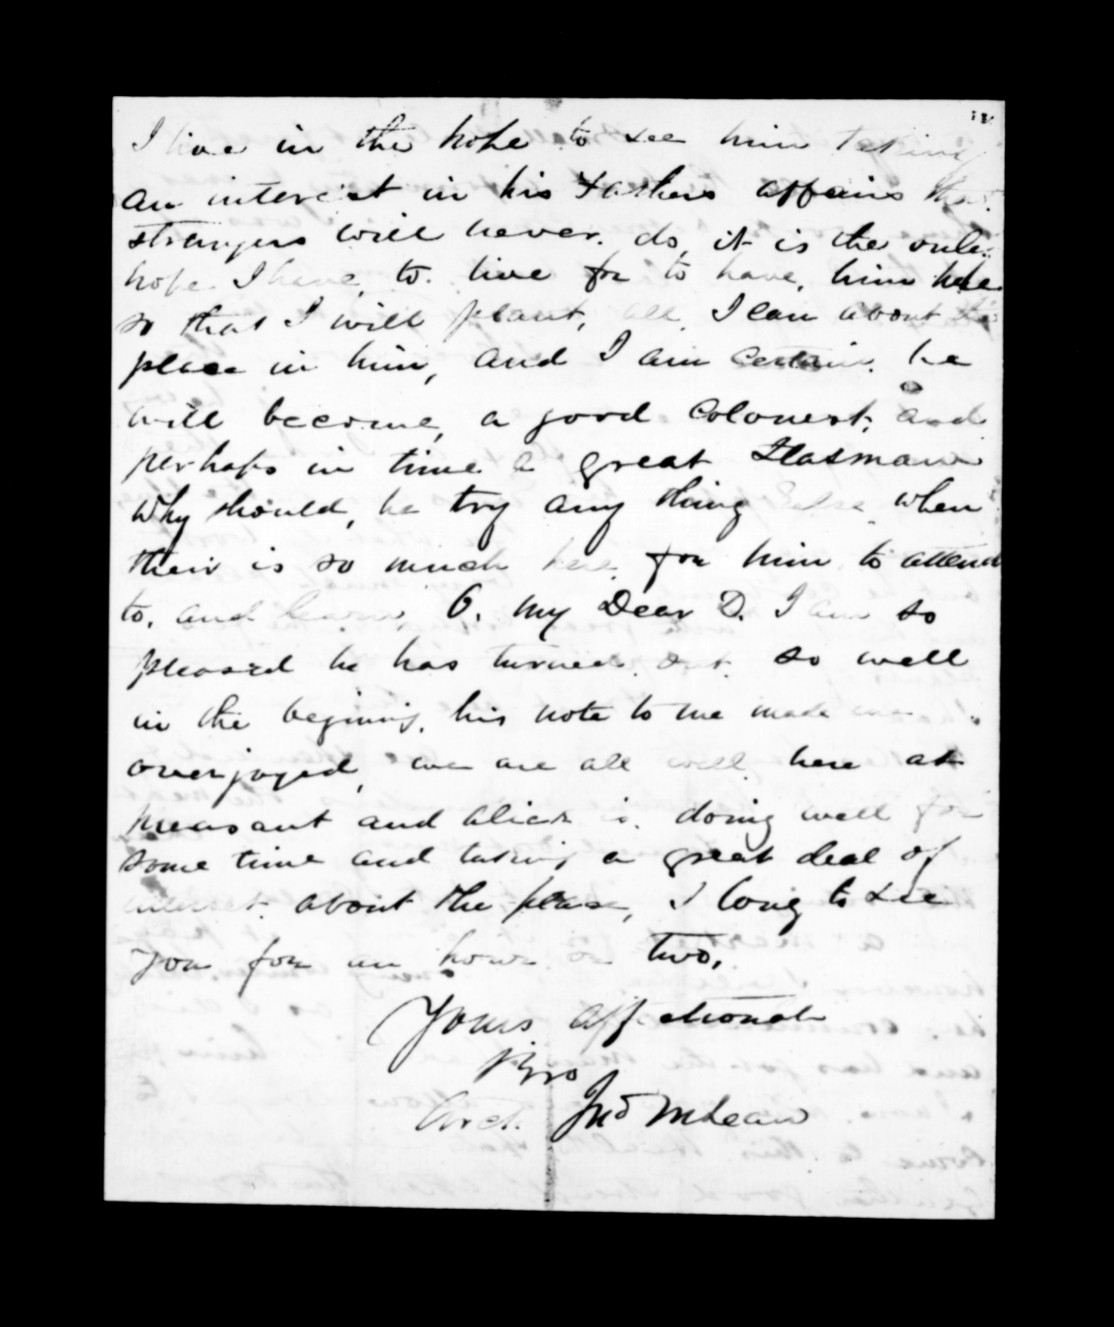 I live in the hope to see him taking
an interest in his Fathers affairs that
strangers will never. do, it is the only
hope I have, to. live for to have, him here
so that I will plant, all, I can about the
place in him, and I am certain. he
will become, a good colonest; and
perhaps in time a great Statesman
Why should, he try any thing else when
their is so much here for him to attend
to. and learn O. my Dear D. I am so
pleased he has turned out so well
in the begining, his note to me made me
overjoyed, we are all well here at
present and Alick is. doing well for
some time and taking a great deal of
interest. about the place, I long to see
you for an hour or two,
Yours affectionate
Bro
Arch. Jno McLean